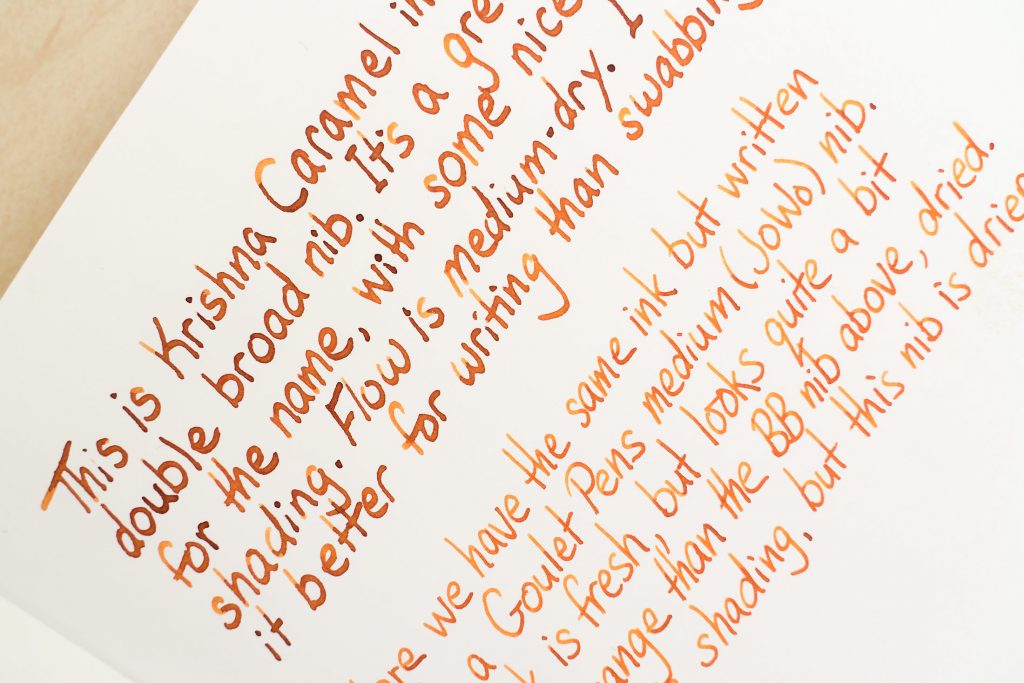 This is Krishna Caramel in
double broad nib. It's a gre
for the name, with some nice
shading. Flow is medium-dry. I
it better for writing than swabbing
ere we have the same ink but written
a Goulet Pens medium (JoWo) nib.
k is fresh, but looks quite a bit
ange than the BB nib above, dried.
shading, but this nib is drie